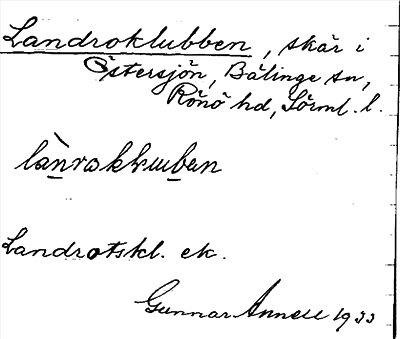 Landroklubben, skär i
Östersjön, Bälinge sn,
Rönö hd, Sörml. l.
Landrotskl. ek.
Gunnar Annell 1933